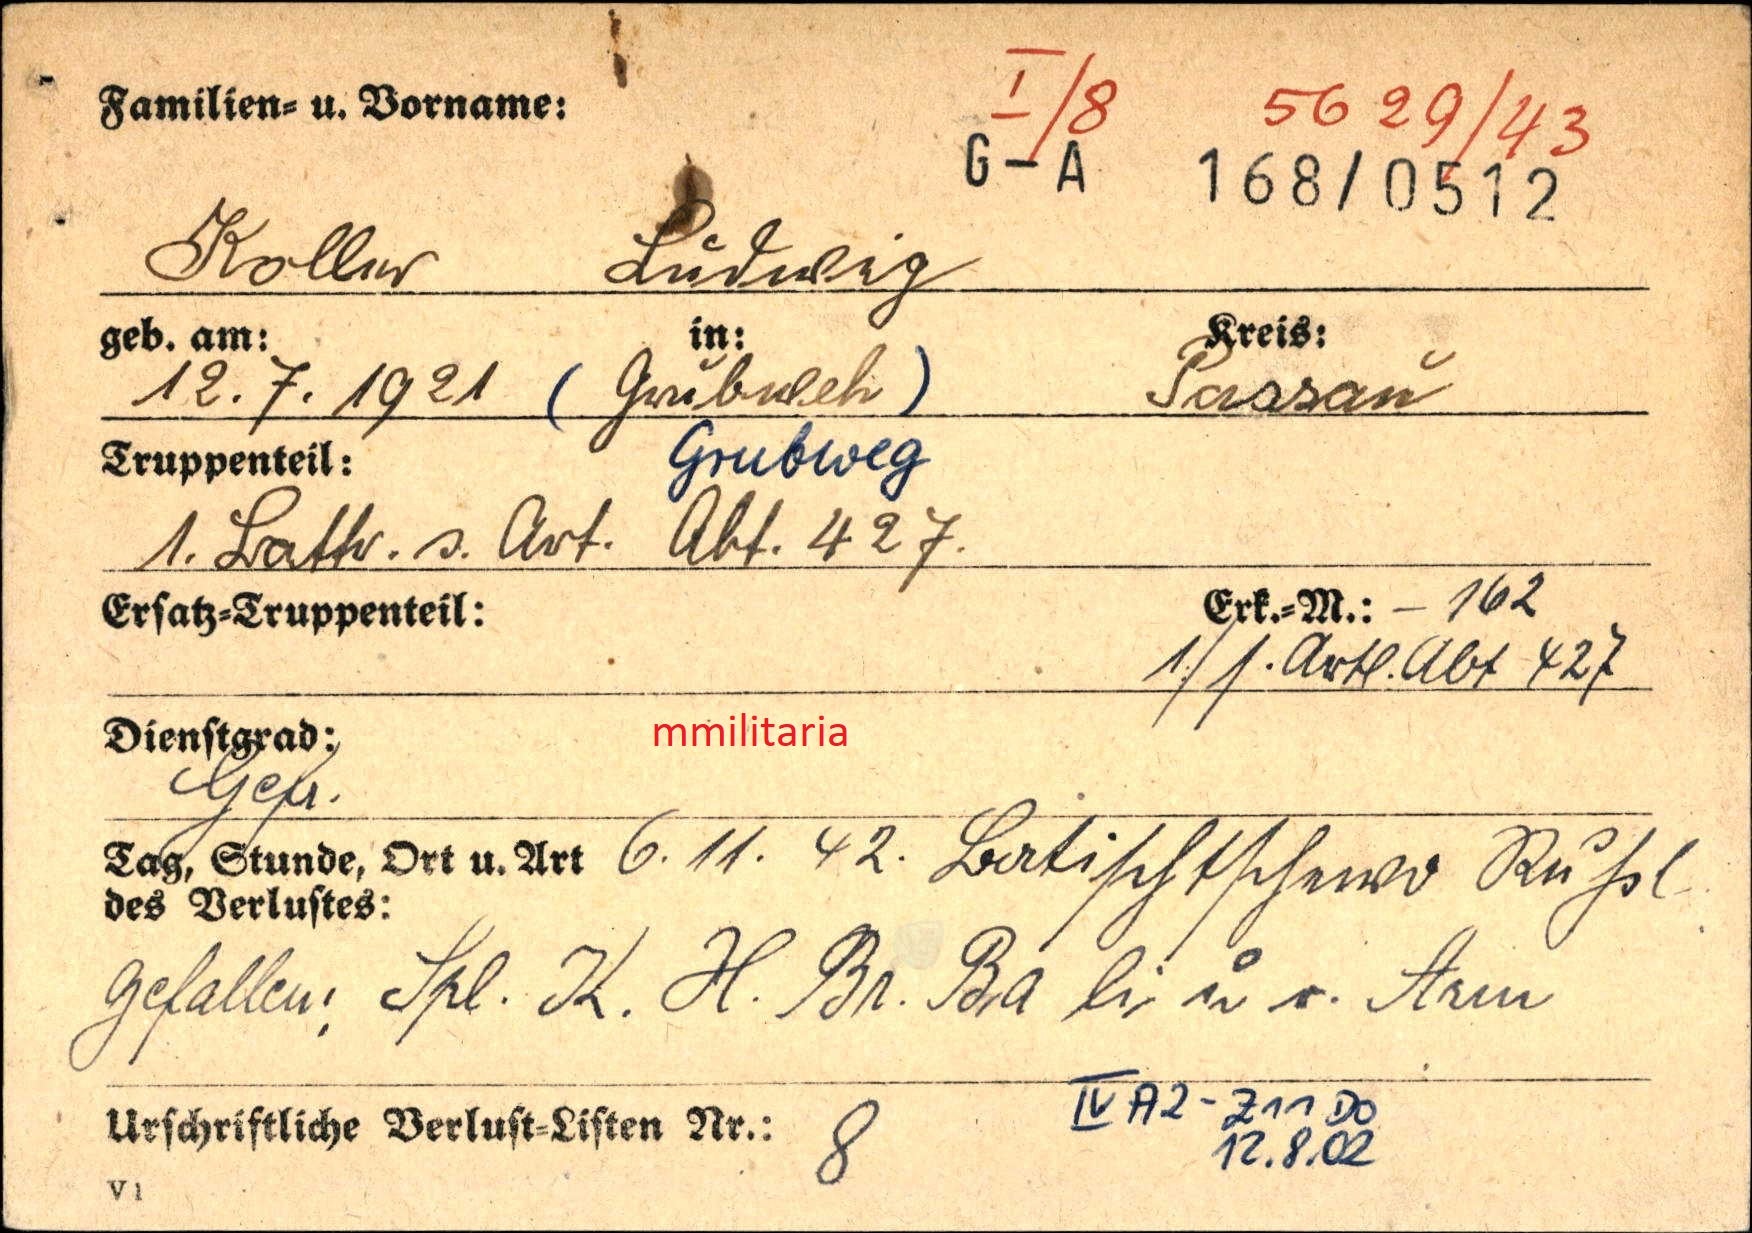 Familien- u. Vorname:
I/8 5629/43
G-A 168/0512
Koller Ludwig
geb. am: in: Kreis:
12.7.1921 (Grubweh) Passau
Truppenteil: Grubweg
1. Battr. s. Art. Abt. 427.
Ersatz-Truppenteil: Erk.-M.: – 162
1./s. Artl. Abt 427
Dienstgrad:
mmilitaria
Gefr.
Tag, Stunde, Ort u. Art 6.11.42. Batischtschewo Rußl.
des Verlustes:
gefallen; Spl. K. H. Br. Ba li u r. Arm
Urschriftliche Verlust-Listen Nr.: 8
IV A2-Z11 Do
12.8.02
V 1